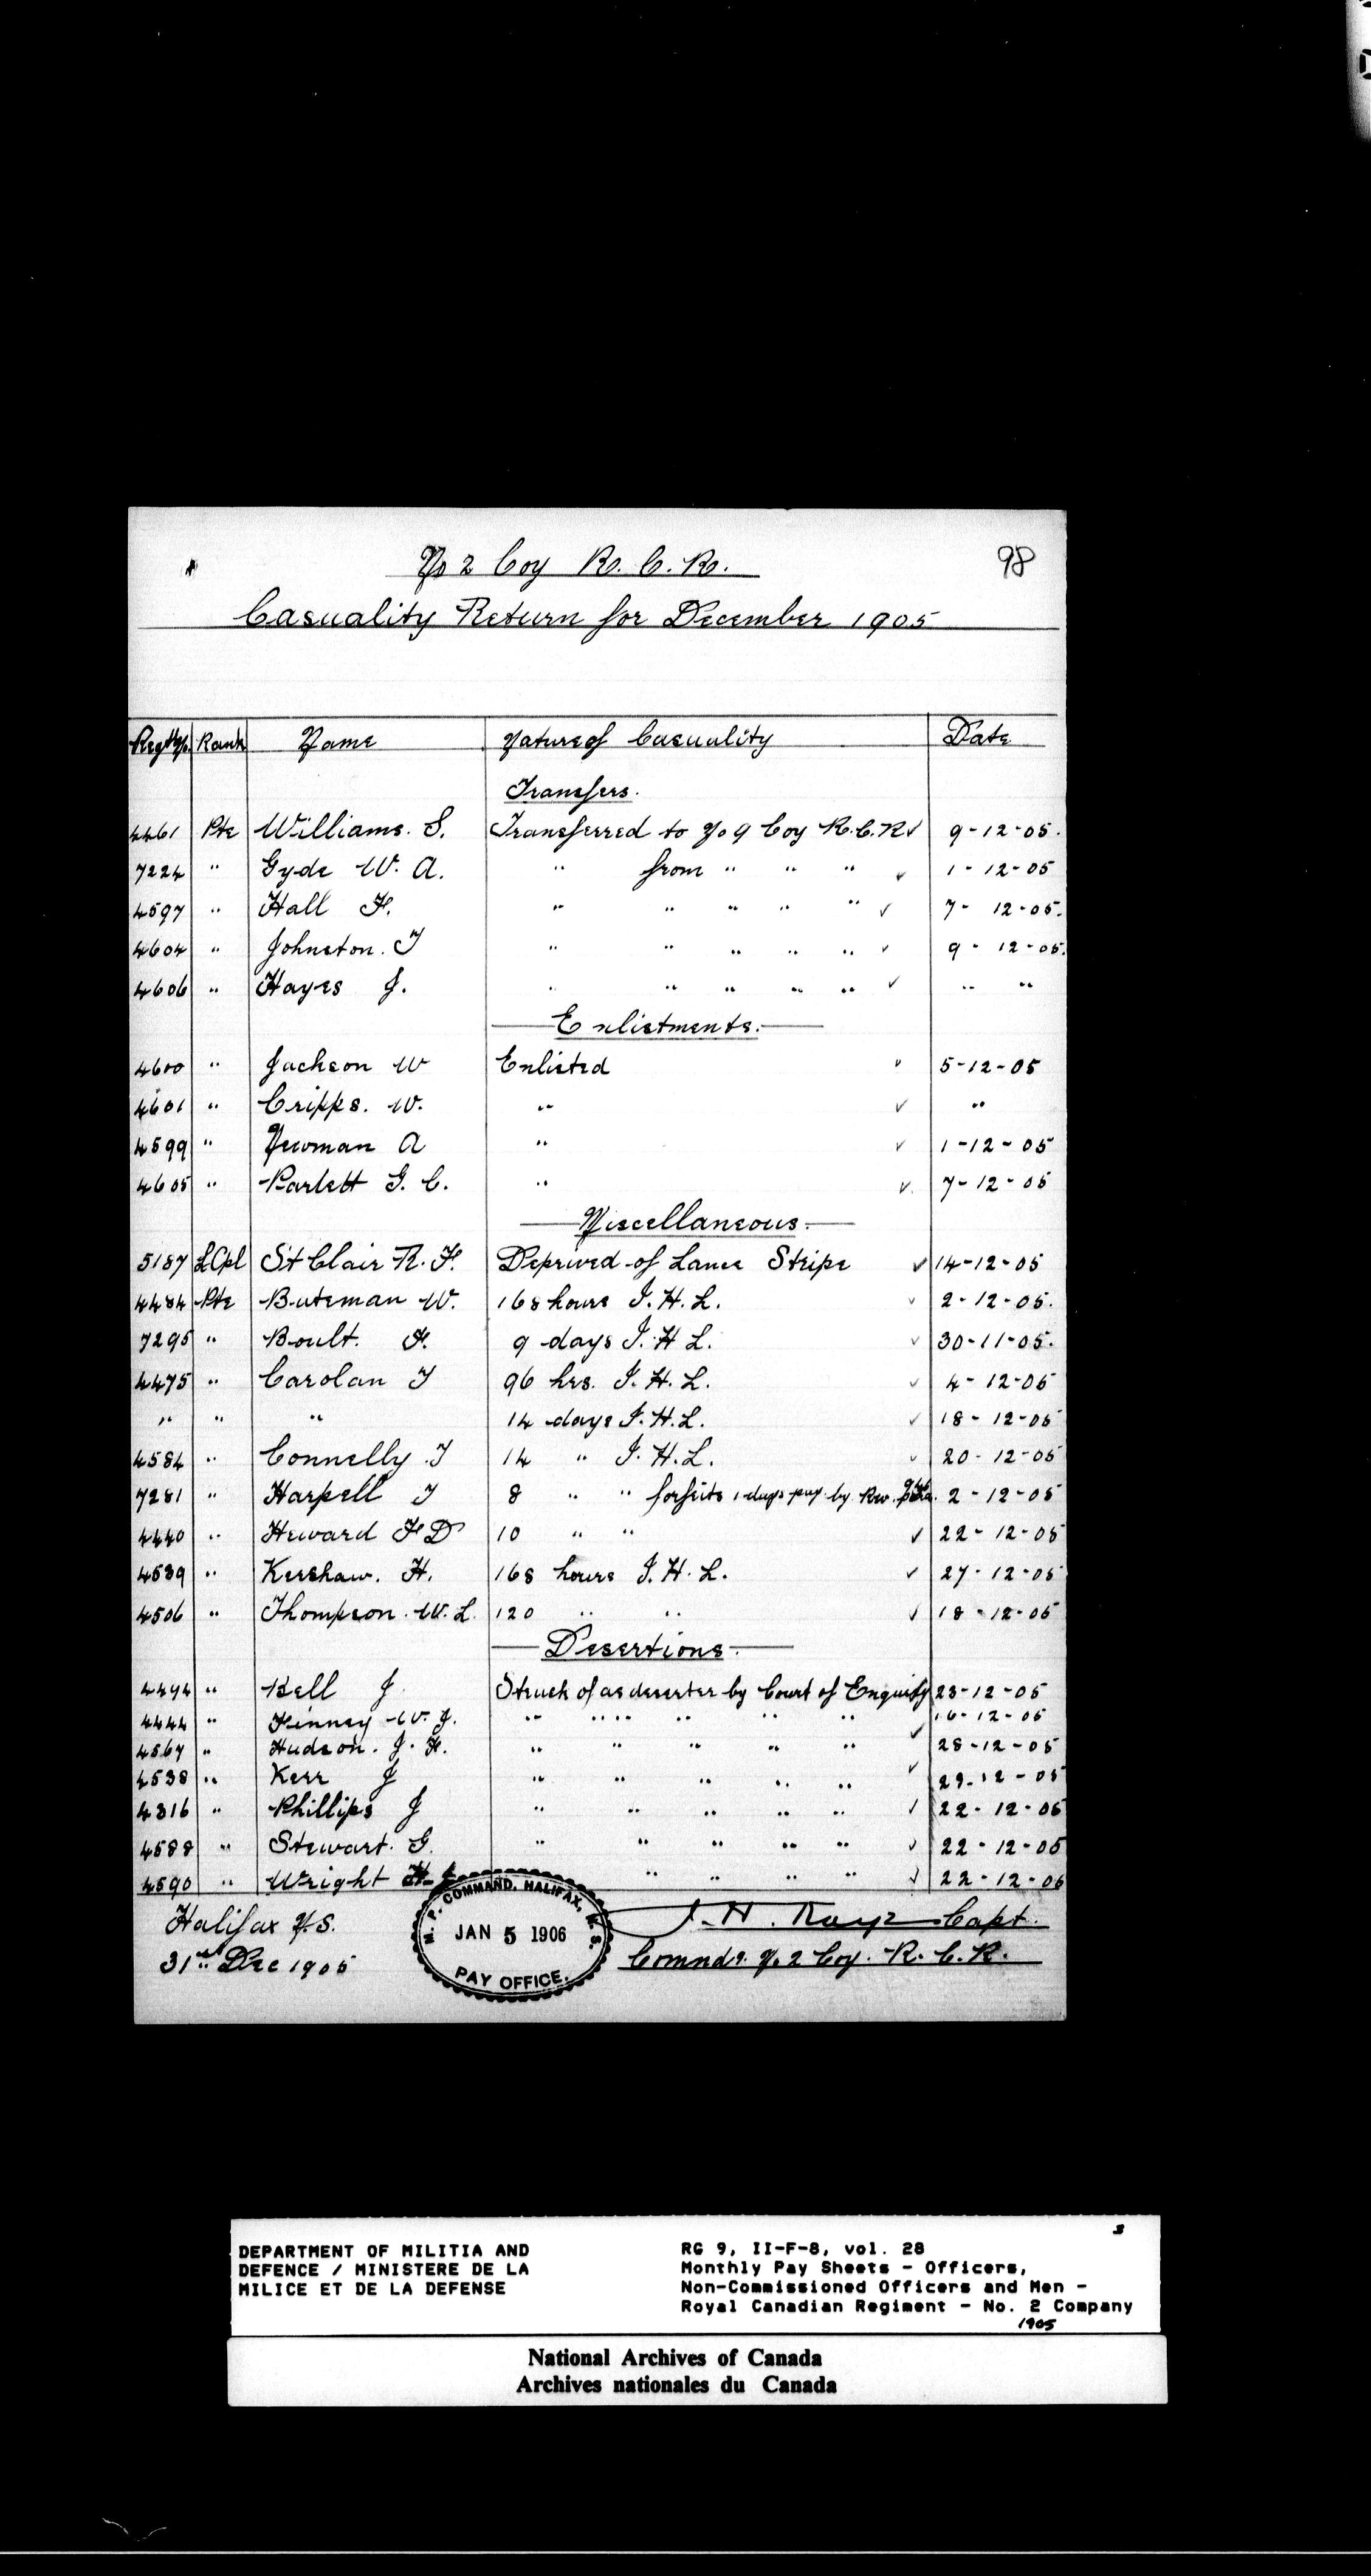 No 2 Coy R.C.R. 98
Casuality Return for December 1905
Regt No. Rank Name Nature of Casuality Date
Transfers.
4461 Pte Williams. S. Transferred to No 9 Coy R.C.R ✓ 9-12-05.
7224 " Gyde W. A. " from " " " ✓ 1-12-05
4597 " Hall F. " " " " " ✓ 7-12-05.
4604 " Johnston. T " " " " " ✓ 9-12-05.
4606 " Hayes J. " " " " " ✓ " "
Enlistments.
4600 " Jackson W Enlisted ✓ 5-12-05
4601 " Cripps. W. " ✓ "
4599 " Newman A " ✓ 1-12-05
4605 " Barlett G. C. " ✓ 7-12-05
Miscellaneous.
5187 LCpl St Clair R. F. Deprived of Lance Stripe ✓ 14-12-05
4484 Pte Buteman W. 168 hours I.H.L. ✓ 2-12-05.
7295 " Boult. F. 9 days I.H L. ✓ 30-11-05.
4475 " Carolan T 96 hrs. I.H.L. ✓ 4-12-05
" " " 14 days I.H.L. ✓ 18-12-05
4584 " Connelly T 14 " I.H.L. ✓ 20-12-05
7281 " Harpell T 8 " " forfeits 1 days pay by Rw. 2-12-05
4440 " Heward F D 10 " " ✓ 22-12-05
4539 " Kershaw. H. 168 hours I.H.L. ✓ 27-12-05
4506 " Thompson. W. L. 120 " " ✓ 18-12-05
Desertions.
4494 " Bell J. Struck of as deserter by Court of Enquiry 23-12-05
4444 " Finney W. J. " " " " " " 16-12-05
4567 " Hudson. J. H. " " " " " ✓ 28-12-05
4538 " Kerr J " " " " " ✓ 29-12-05
4316 " Phillips J " " " " " ✓ 22-12-05
4588 " Stewart. G. " " " " " ✓ 22-12-05
4590 " Wright " " " " ✓ 22-12-05
Halifax N.S. J. H. Kaye Capt.
31st Dec 1905 Comndg. No 2 Coy. R.C.R.
M. P. COMMAND, HALIFAX, N. S.
JAN 5 1906
PAY OFFICE.
3
DEPARTMENT OF MILITIA AND RG 9, II-F-8, vol. 28
DEFENCE / MINISTERE DE LA Monthly Pay Sheets - Officers,
MILICE ET DE LA DEFENSE Non-Commissioned Officers and Men -
Royal Canadian Regiment - No. 2 Company
1905
National Archives of Canada
Archives nationales du Canada